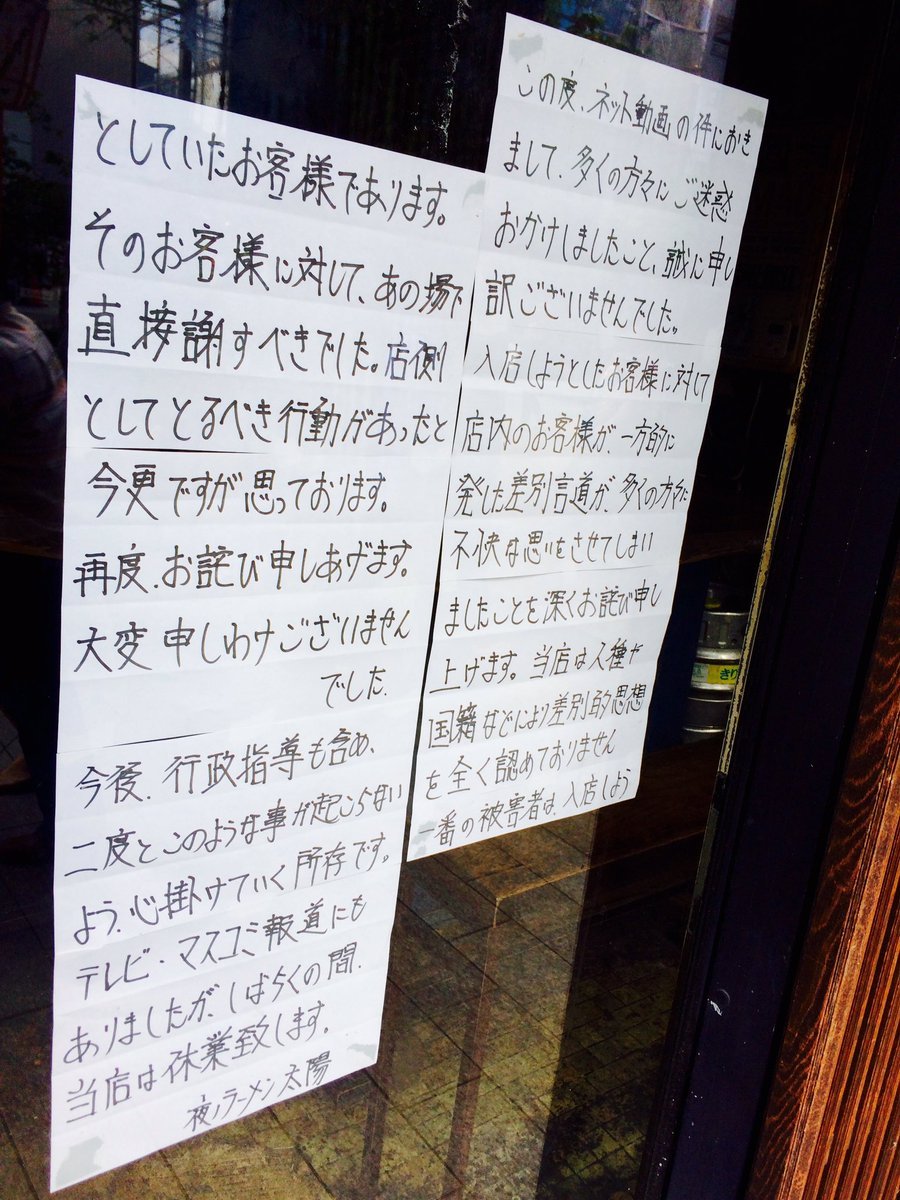 この度、ネット動画の件におき
まして、多くの方々にご迷惑
おかけしましたこと、誠に申し
訳ございませんでした。
入店しようとしたお客様に対して
店内のお客様が、一方的に
発した差別言道が、多くの方々に
不快な思いをさせてしまい
ましたことを深くお詫び申し
上げます。当店は人種が
国籍などにより差別的思想
を全く認めておりません
一番の被害者は、入店しよう
としていたお客様であります。
そのお客様に対して、あの場で
直接謝すべきでした。店側
としてとるべき行動があったと
今更ですが思っております。
再度、お詫び申しあげます。
大変申しわけございません
でした.
今後、行政指導も含め、
二度とこのような事が起こらない
よう、心掛けていく所存です。
テレビ・マスコミ報道にも
ありましたが、しばらくの間、
当店は休業致します。
夜ノラーメン太陽
きり